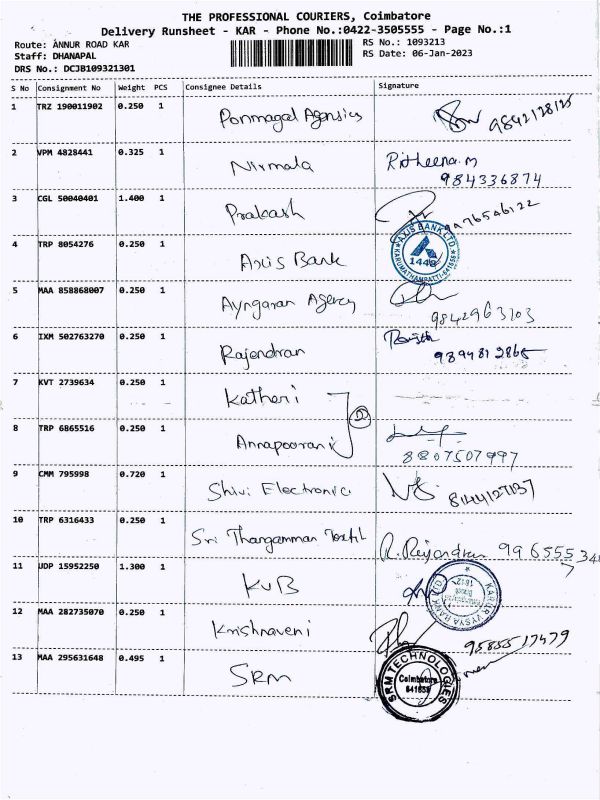 THE PROFESSIONAL COURIERS, Coimbatore
Delivery Runsheet - KAR - Phone No.:0422-3505555 - Page No.:1
Route: ANNUR ROAD KAR
RS No.: 1093213
Staff: DHANAPAL
RS Date: 06-Jan-2023
DRS No.: DCJB109321301
S No Consignment No Weight PCS Consignee Details Signature
1 TRZ 190011902 0.250 1 Ponmagal Agensies 9842128125
2 VPM 4828441 0.325 1 Nirmala Ritheena.m
984336874
3 CGL 50040401 1.400 1 Prakash 9976546122
AXIS BANK LTD.
4 TRP 8054276 0.250 1 Axis Bank 1448
KARUMATHAMPATTI-641659
5 MAA 858868007 0.250 1 Ayngaran Agency
9842963103
6 IXM 502763270 0.250 1 Rajendran
9894812865
7 KVT 2739634 0.250 1 Katheri
8 TRP 6865516 0.250 1 Annapoorani
8807507997
9 CMM 795998 0.720 1 Shivi Electronic 8144127137
10 TRP 6316433 0.250 1 Sri Thangamman Textil R. Rejendran 996555 34
11 UDP 15952250 1.300 1 KVB
KARUR VYSYA BANK LTD
12 MAA 282735070 0.250 1 Krishnaveni 9585517479
13 MAA 295631648 0.495 1 SRM
SRM TECHNOLOGIES
Coimbatore